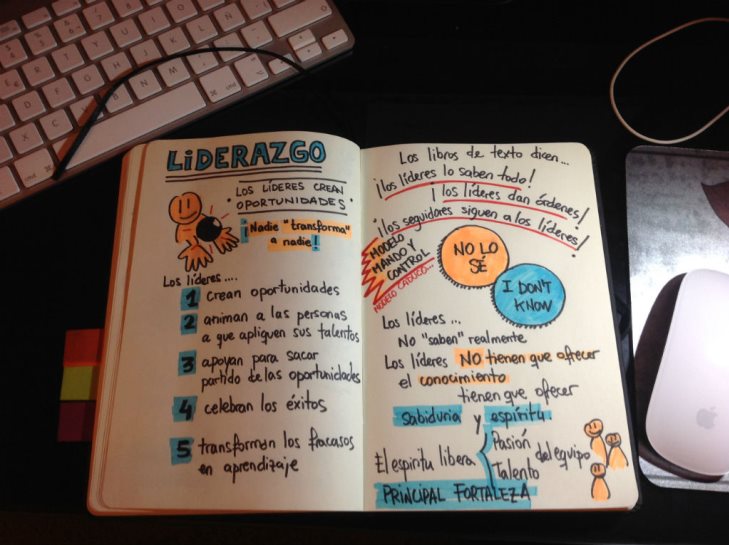 LIDERAZGO
LOS LÍDERES CREAN
OPORTUNIDADES
¡Nadie "transforma"
a nadie!
Los líderes....
1 crean oportunidades
2 animan a las personas
a que apliquen sus talentos
3 apoyan para sacar
partido de las oportunidades
4 celebran los éxitos
5 transforman los fracasos
en aprendizaje
Los libros de texto dicen...
¡los líderes lo saben todo!
¡los líderes dan órdenes!
¡los seguidores siguen a los líderes!
MODELO
MANDO Y
CONTROL
MODELO CADUCO...
NO LO
SÉ
I DON'T
KNOW
Los líderes...
No "saben" realmente
Los líderes NO tienen que ofrecer
el conocimiento
tienen que ofrecer
Sabiduría y espíritu
El espíritu libera
Pasión
Talento
del equipo
PRINCIPAL FORTALEZA